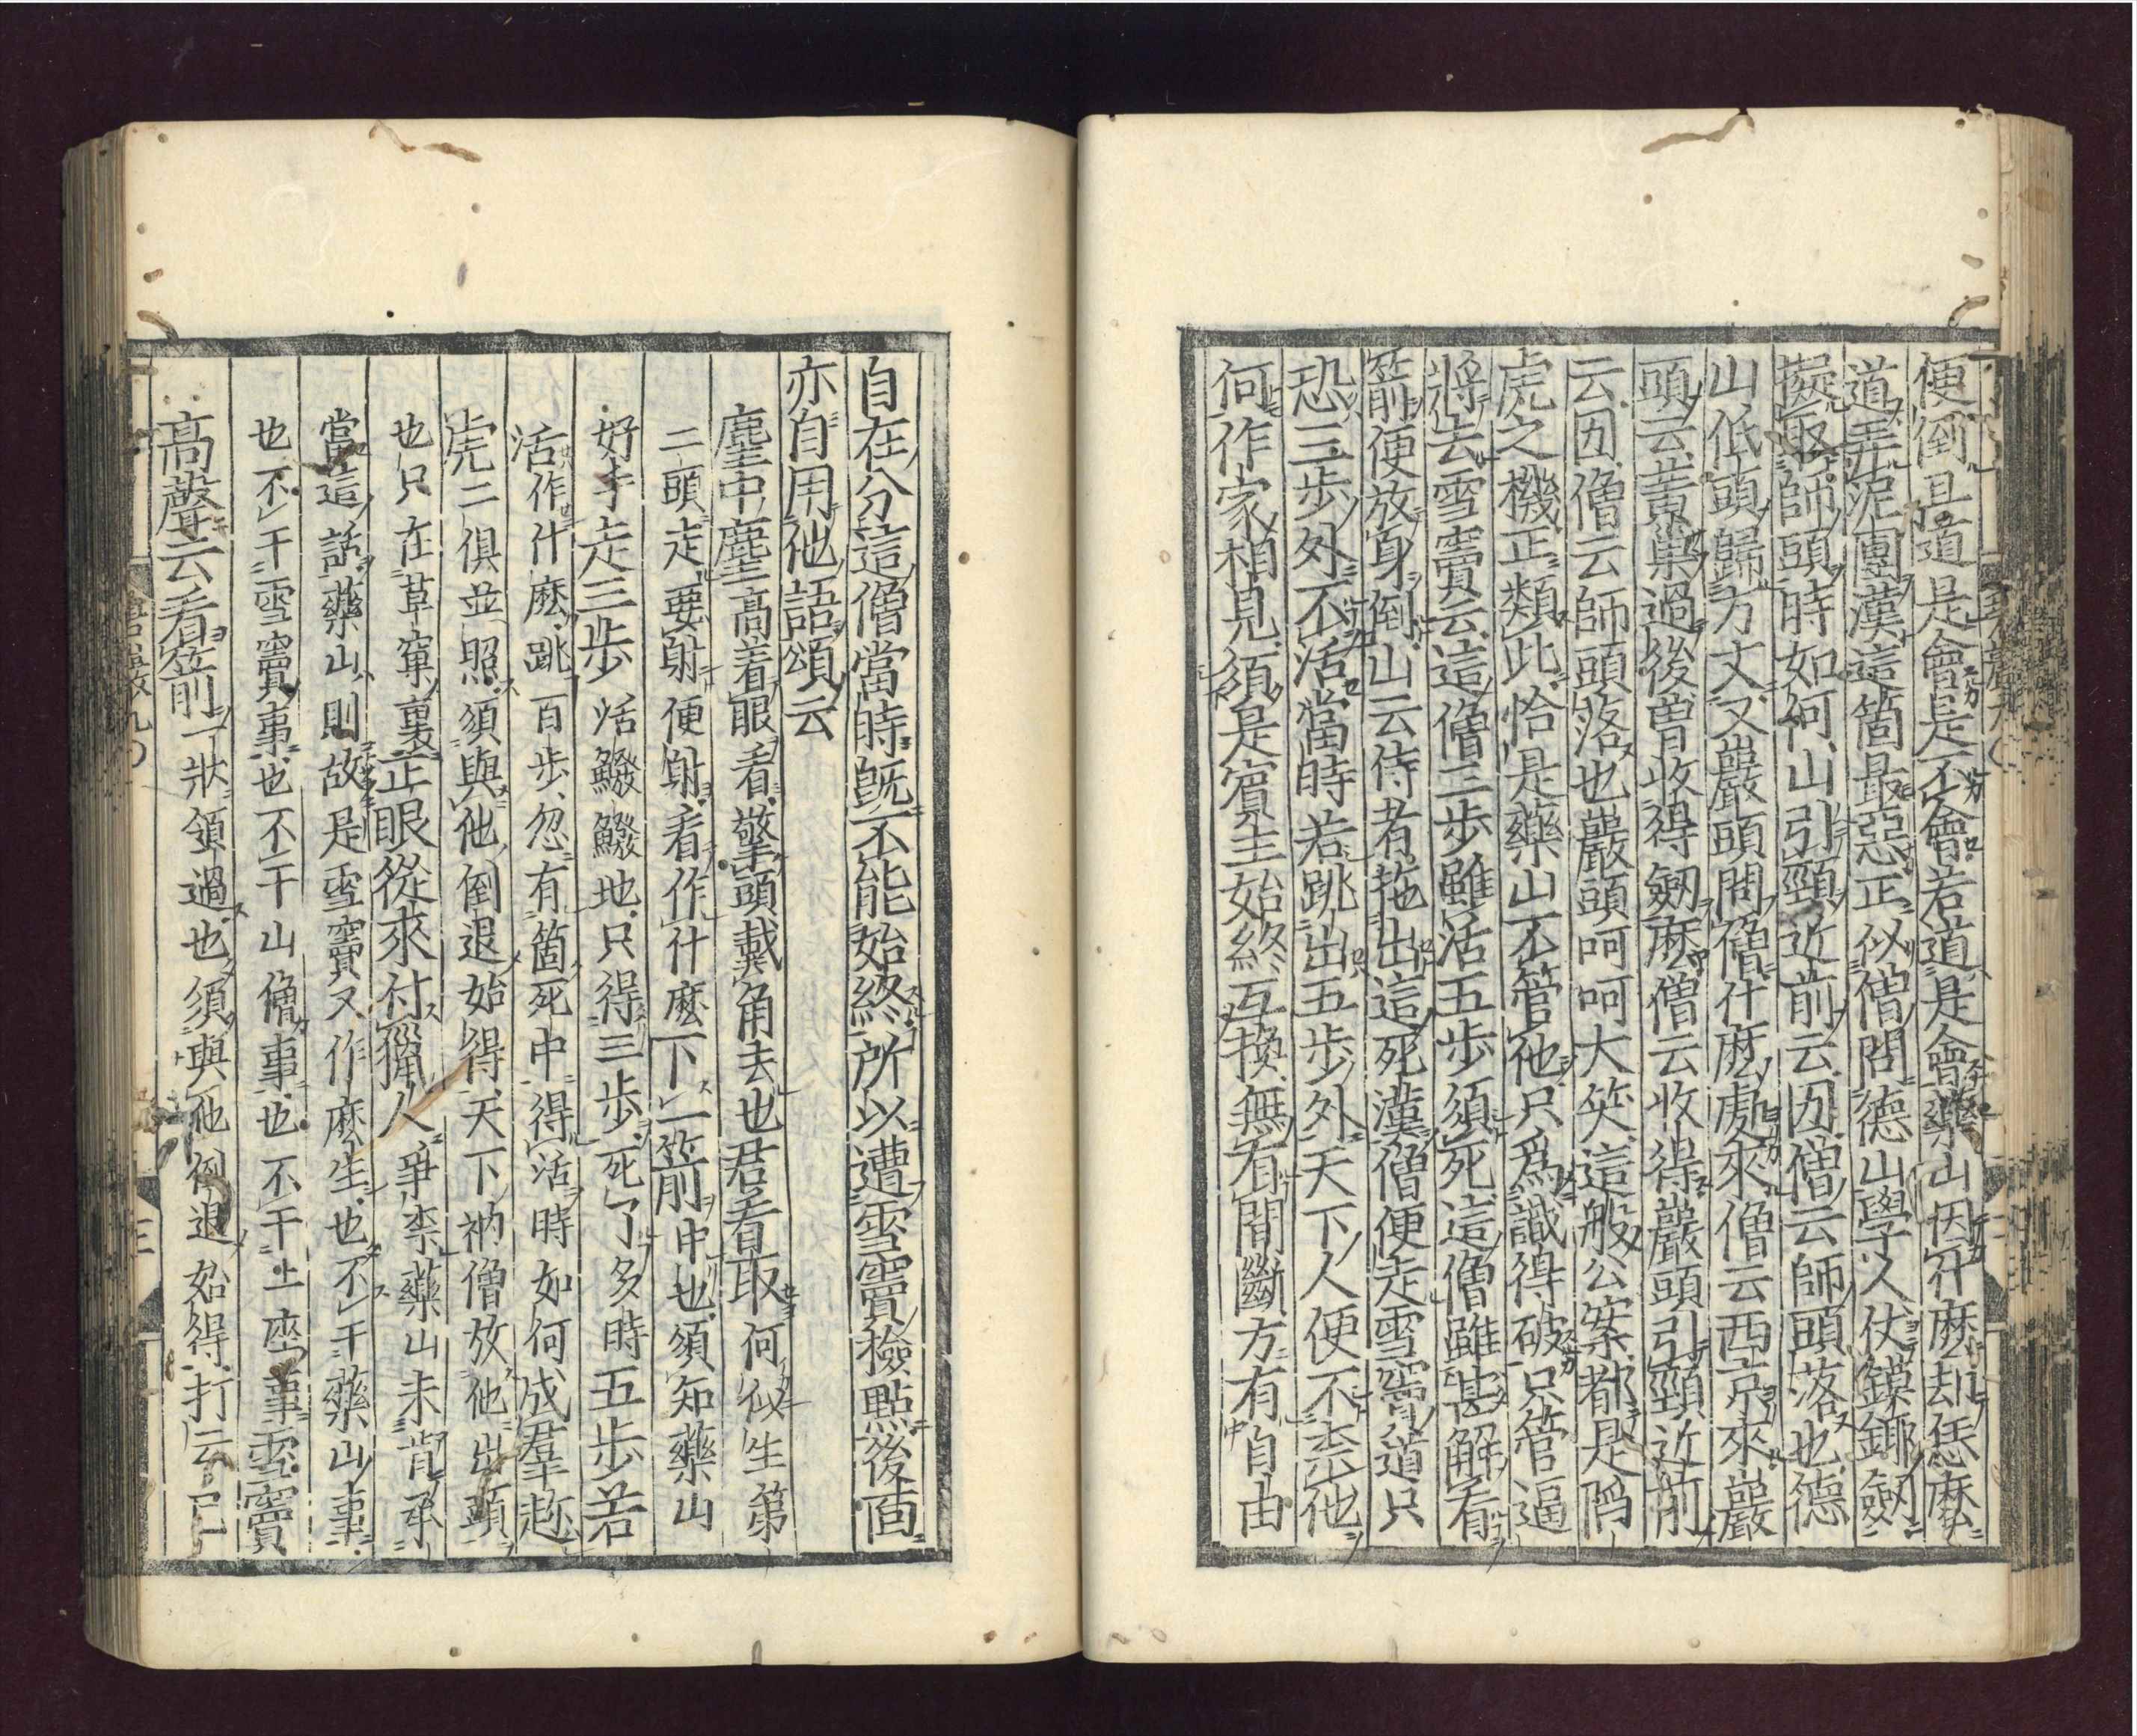 便倒且道是會是不會若道是會藥山因什麽却恁麽
道弄泥團漢這箇最惡正似僧問德山學人仗鏌鎁劒
擬取師頭時如何山引頸近前云㘞僧云師頭落也德
山低頭歸方丈又巖頭問僧什麽處來僧云西京來巖
頭云黃巢過後曾收得劒麽僧云收得巖頭引頸近前
云㘞僧云師頭落也巖頭呵呵大笑這般公案都是陷
虎之機正類此恰是藥山不管他只爲識得破只管逼
將去雪竇云這僧三步雖活五步須死這僧雖甚解看
箭便放身倒山云侍者拖出這死漢僧便走雪竇道只
恐三步外不活當時若跳出五步外天下人便不柰他
何作家相見須是賓主始終互換無有間斷方有自由
自在分這僧當時既不能始終所以遭雪竇撿點後面
亦自用他語頌云
麈中麈高着眼看擎頭戴角去也君看取何似生第
二頭走要射便射看作什麽下一箭中也須知藥山
好手走三步活鱍鱍地只得三步死了多時五步若
活作什麽跳百步忽有箇死中得活時如何成羣趂
虎二俱並照須與他倒退始得天下衲僧放他出頭
也只在草窠裏正眼從來付獵人爭柰藥山未肯承
當這話藥山則故是雪竇又作麽生也不干藥山事
也不干雪竇事也不干山僧事也不干上座事雪竇
高聲云看箭一狀領過也須與他倒退始得打云已